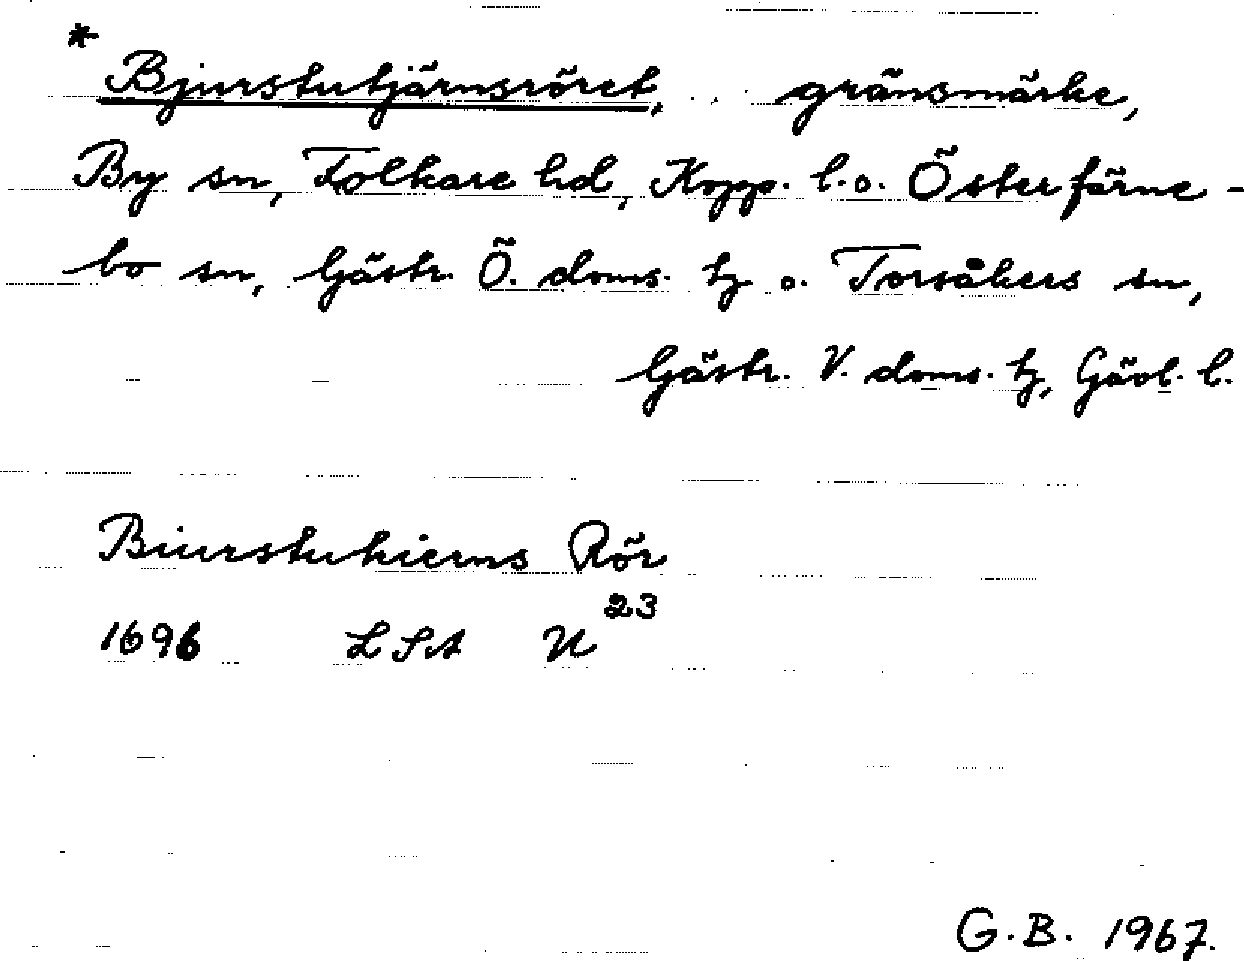 * Bjurstutjärnsröret, gränsmärke,
By sn, Folkare hd, Kopp. l. o. Österfärne-
bo sn, Gästr. Ö. doms. tg o. Torsåkers sn,
Gästr. V. doms. tg, Gävl. l.
Biurstutierns Rör
1696 LSA U 23
G.B. 1967.